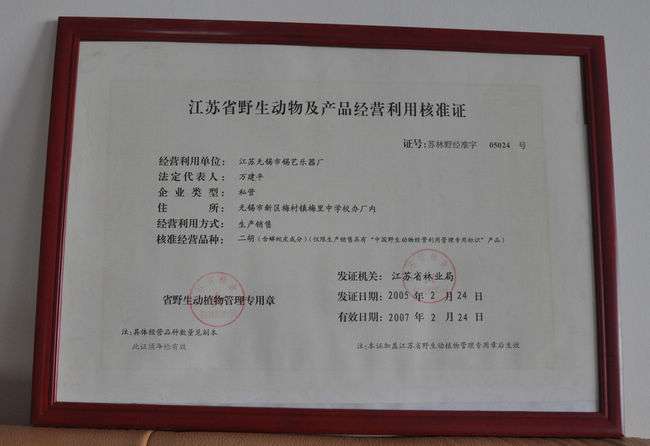 江苏省野生动物及产品经营利用核准证
证号:苏林野经准字 05024 号
经营利用单位: 江苏无锡市锡艺乐器厂
法定代表人: 万建平
企业类型: 私营
住所: 无锡市新区梅村镇梅里中学校办厂内
经营利用方式: 生产销售
核准经营品种: 二胡(含蟒蛇皮成分)(仅限生产销售具有“中国野生动物经营利用管理专用标识”产品)
发证机关: 江苏省林业局
省野生动植物管理专用章
发证日期: 2005 年 2 月 24 日
有效日期: 2007 年 2 月 24 日
注:具体经营品种数量见副本
此证须年检有效
注:本证加盖江苏省野生动植物管理专用章后生效